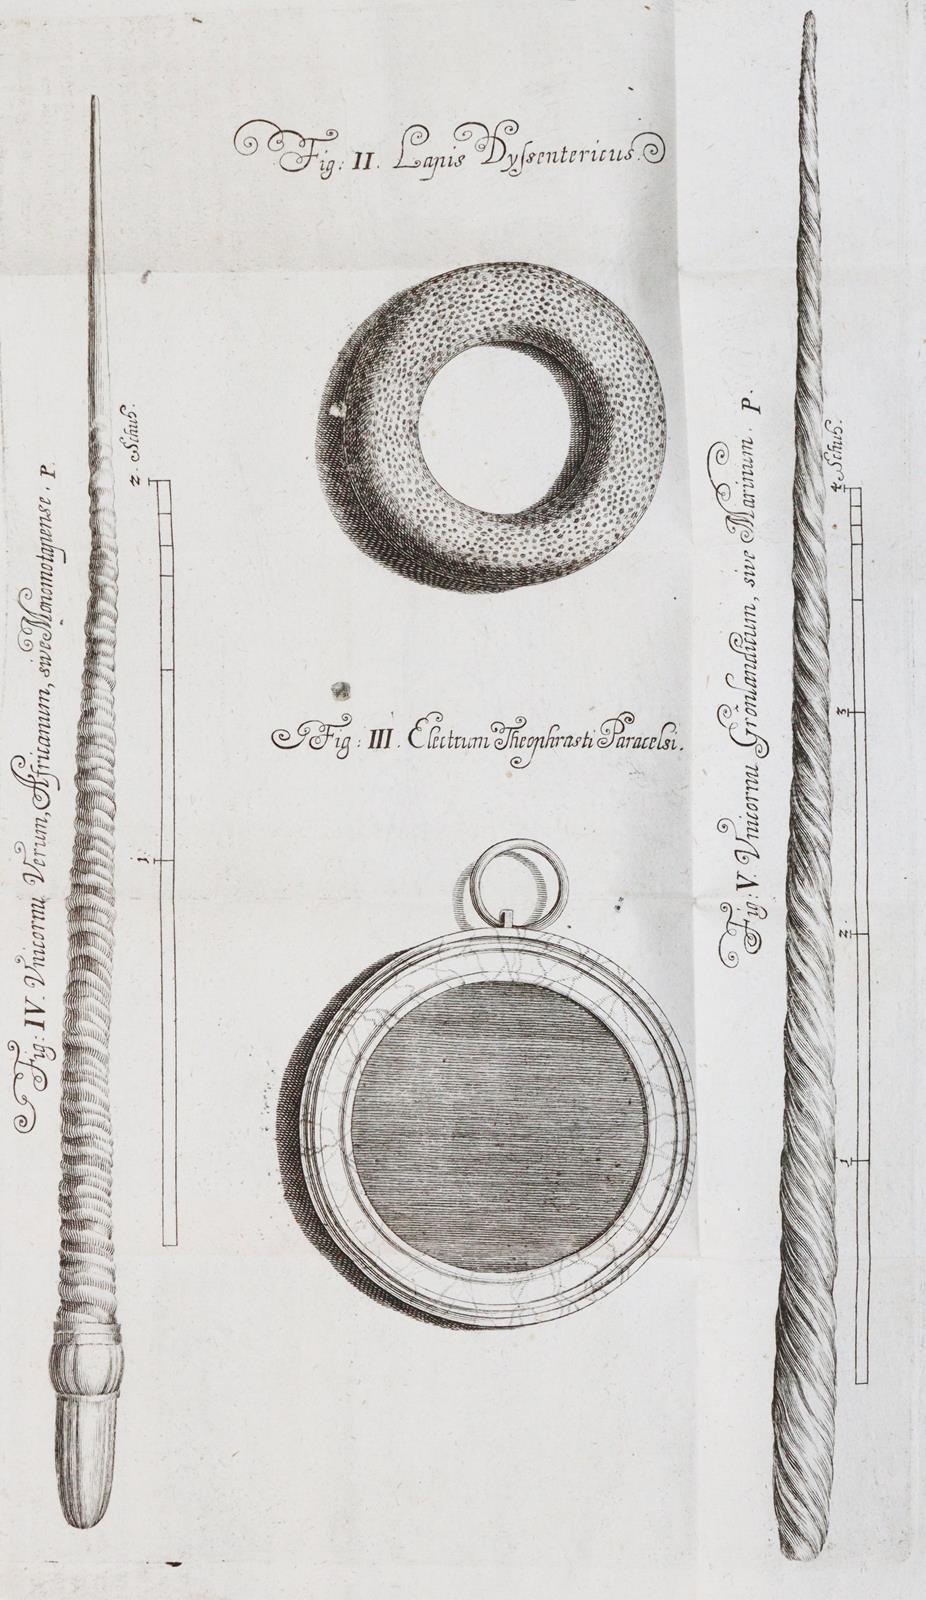 Fig: II. Lapis Dyſsentericus.
Fig: III. Electrum Theophrasti Paracelsi.
Fig: IV. Vnicornu Verum, Africanum, sive Monomotapense. P.
2. Schuh.
1
Fig: V. Vnicornu Grönlandicum, sive Marinum. P.
4 Schuh.
3
2
1